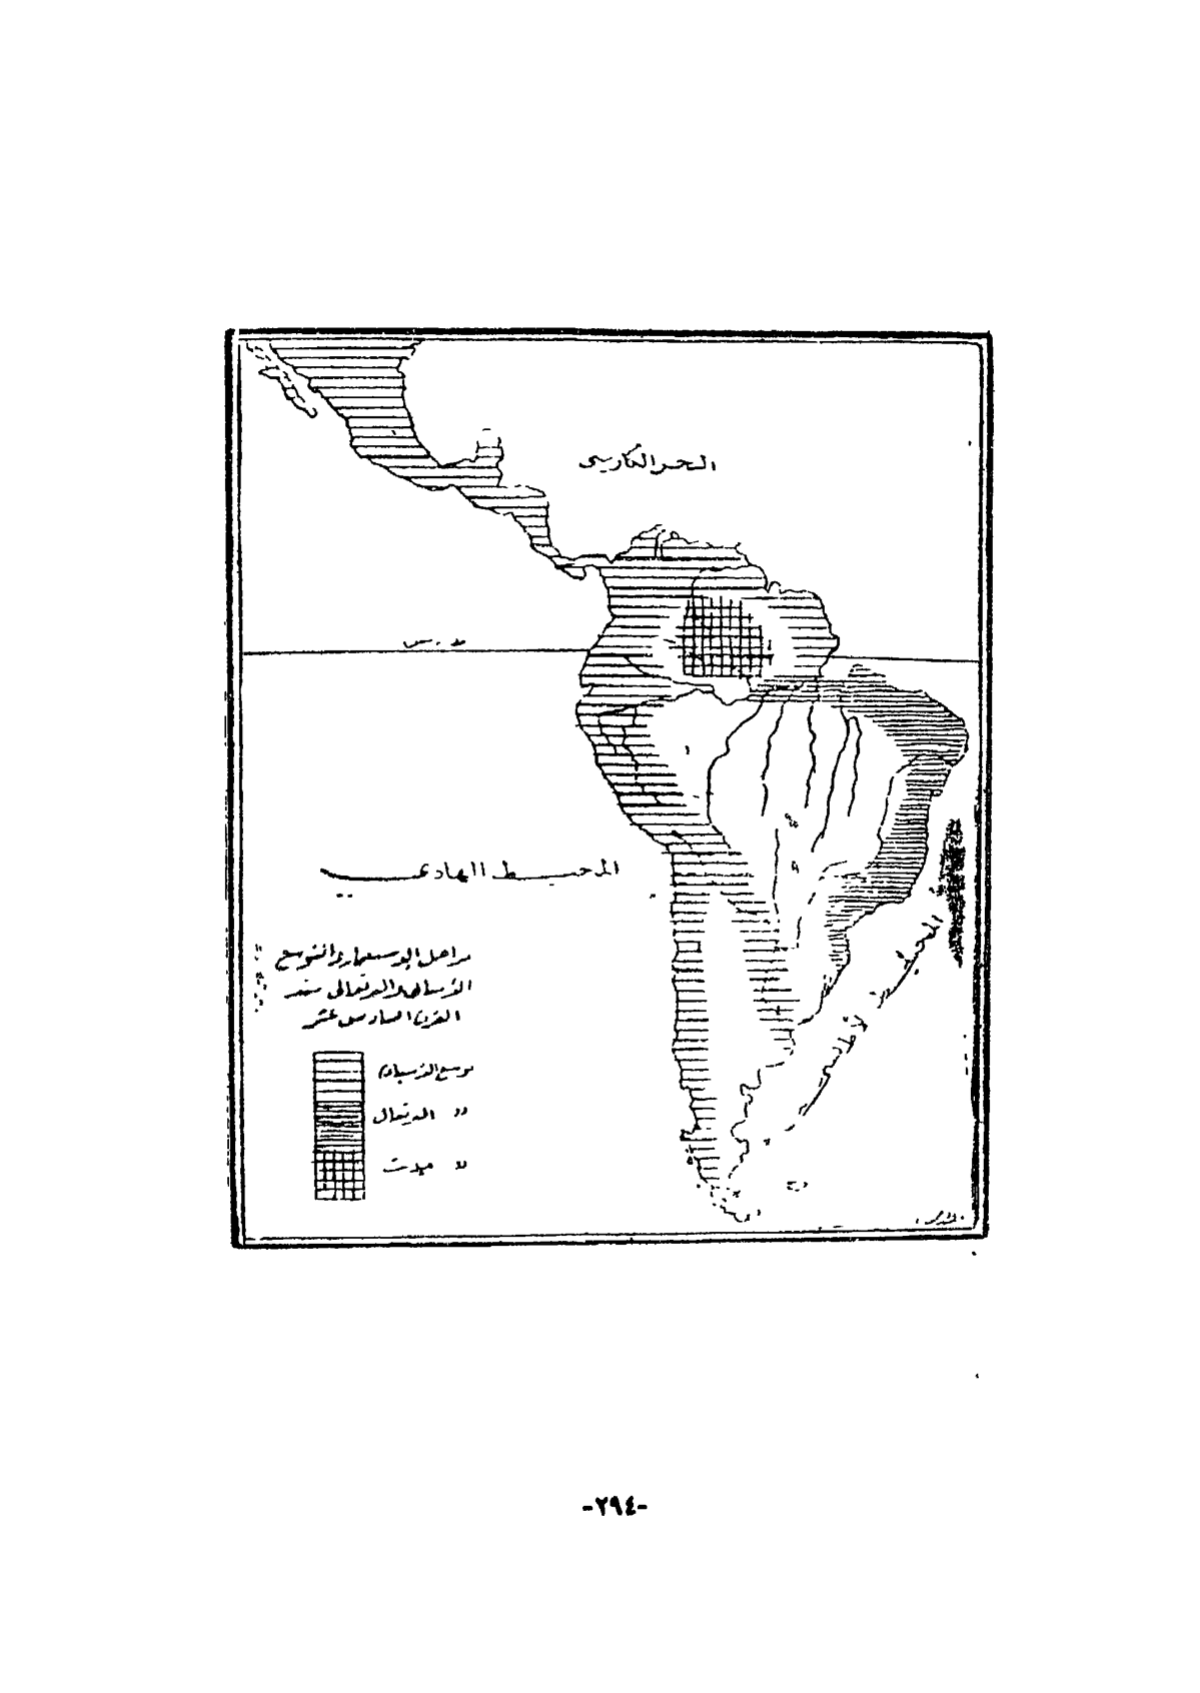 البحر الكاريبى
المحيط الهادي
المحيط الأطلسي
مراحل الاستعمار والتوسع
الأسبانى والبرتغالى منذ
القرن السادس عشر
توسع الأسبان
〃 البرتغال
〃
-٢٩٤-